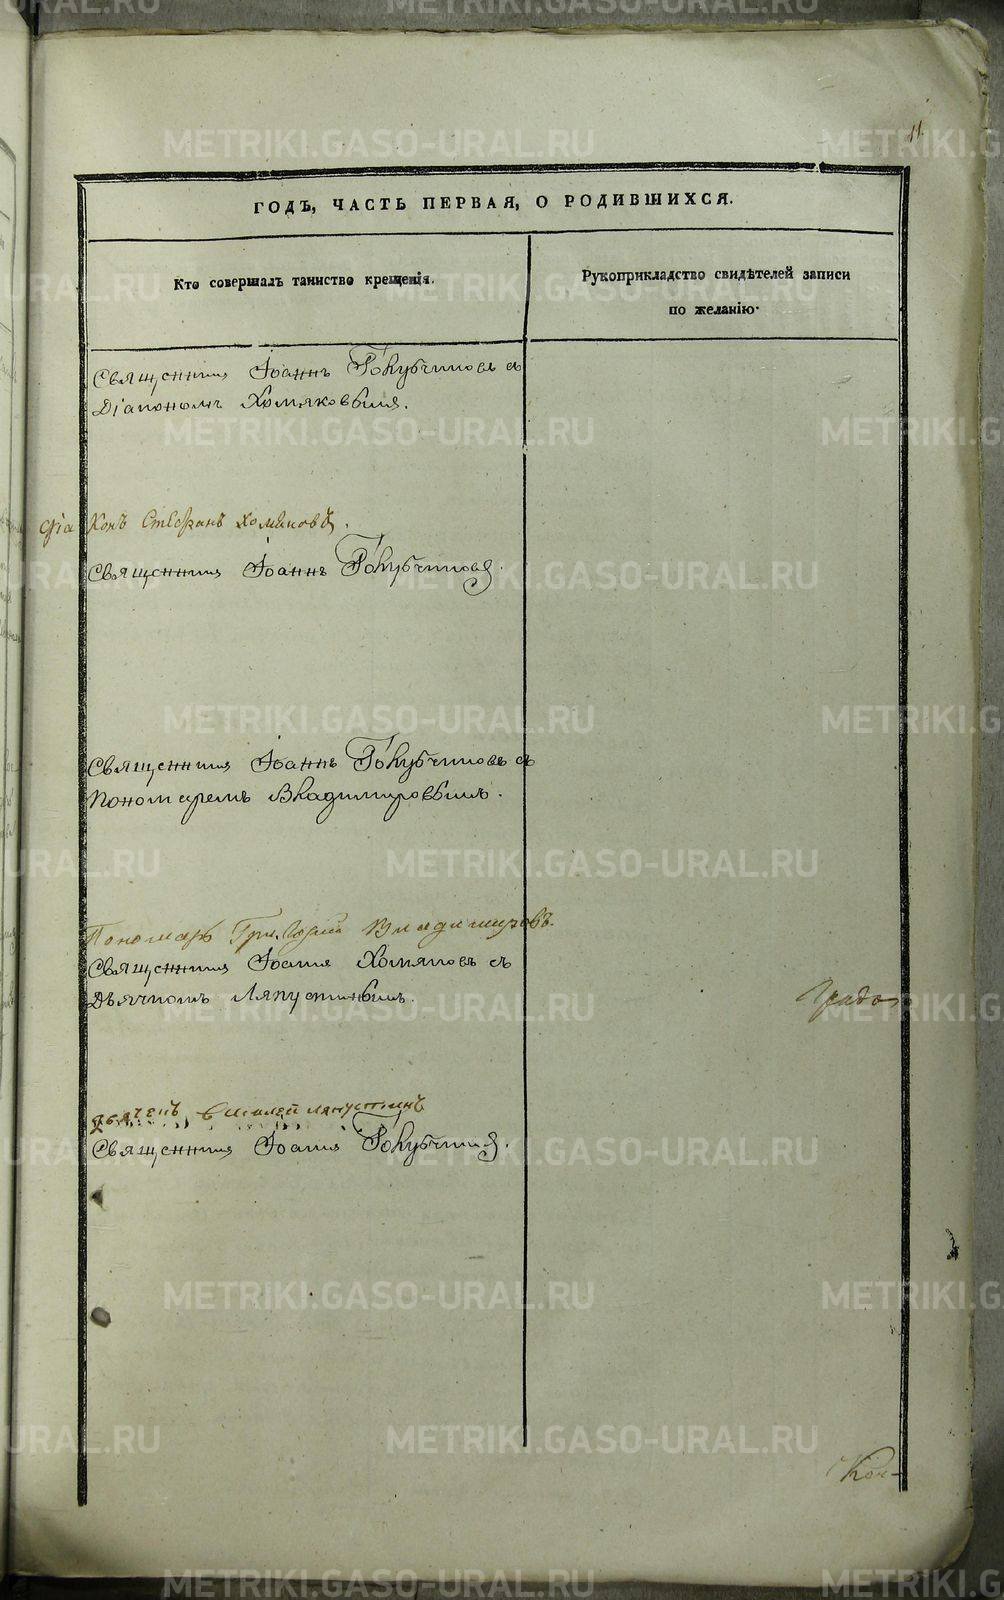 11.
ГОДЪ, ЧАСТЬ ПЕРВАЯ, О РОДИВШИХСЯ.
Кто совершалъ таинство крещенія.
Рукоприкладство свидѣтелей записи
по желанію.
Священникъ Іоаннъ Голубчиковъ съ
Діакономъ Хомяковымъ.
Діаконъ Стефанъ Хомяковъ.
Священникъ Іоаннъ Голубчиковъ.
Священникъ Іоаннъ Голубчиковъ съ
Пономаремъ Владимировымъ.
Пономарь Григорій Владимировъ.
Священникъ Іоаннъ Хомяковъ съ
Дьячкомъ Ляпустинымъ.
Градо-
дьячекъ Ляпустинъ
Священникъ Іоаннъ Голубчиковъ.
METRIKI.GASO-URAL.RU